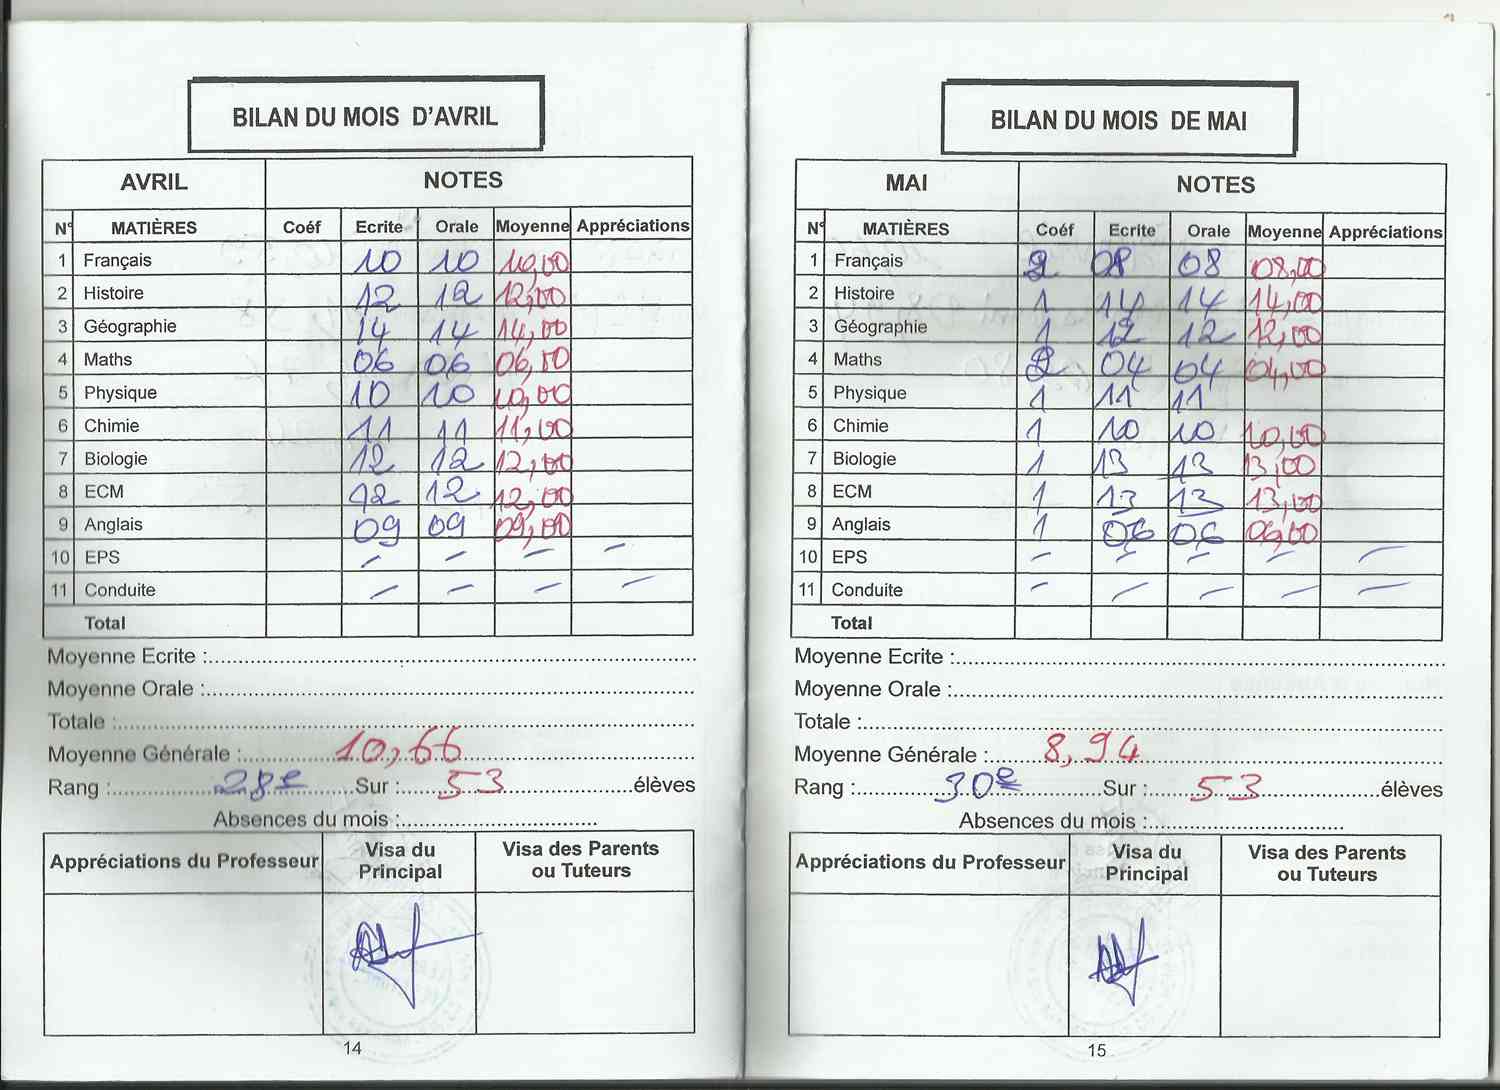 BILAN DU MOIS D'AVRIL
AVRIL NOTES
N° MATIÈRES Coéf Ecrite Orale Moyenne Appréciations
1 Français 10 10 10,00
2 Histoire 12 12 12,00
3 Géographie 14 14 14,00
4 Maths 06 06 06,00
5 Physique 10 10 10,00
6 Chimie 11 11 11,00
7 Biologie 12 12 12,00
8 ECM 12 12 12,00
9 Anglais 09 09 09,00
10 EPS – – – –
11 Conduite – – – –
Total
Moyenne Ecrite :
Moyenne Orale :
Totale :
Moyenne Générale : 10,66
Rang : 28e Sur : 53 élèves
Absences du mois :
Appréciations du Professeur Visa du Principal Visa des Parents ou Tuteurs
14
BILAN DU MOIS DE MAI
MAI NOTES
N° MATIÈRES Coéf Ecrite Orale Moyenne Appréciations
1 Français 2 08 08 08,00
2 Histoire 1 14 14 14,00
3 Géographie 1 12 12 12,00
4 Maths 2 04 04 04,00
5 Physique 1 11 11
6 Chimie 1 10 10 10,00
7 Biologie 1 13 13 13,00
8 ECM 1 13 13 13,00
9 Anglais 1 06 06 06,00
10 EPS – – – – –
11 Conduite – – – – –
Total
Moyenne Ecrite :
Moyenne Orale :
Totale :
Moyenne Générale : 8,94
Rang : 30e Sur : 53 élèves
Absences du mois :
Appréciations du Professeur Visa du Principal Visa des Parents ou Tuteurs
15